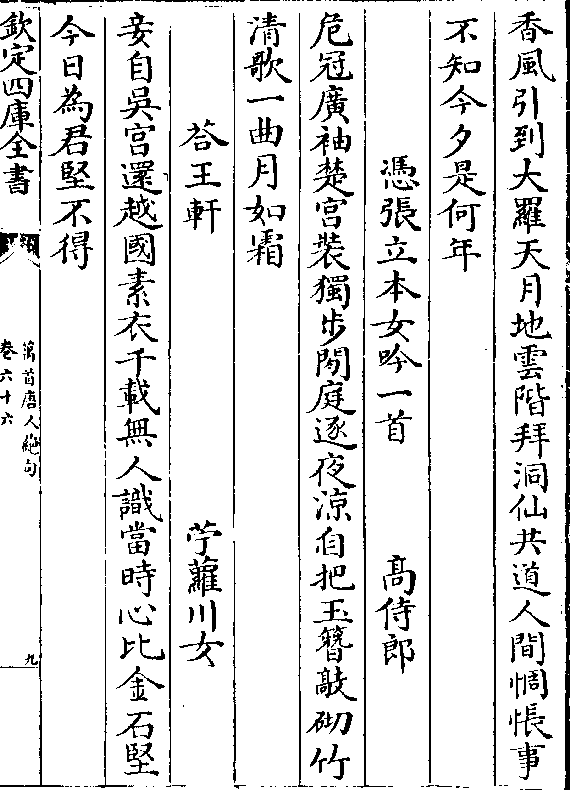 香風引到大羅天月地雲階拜洞仙共道人間惆悵事
不知今夕是何年
憑張立本女吟一首 高侍郎
危冠廣袖楚宮裝獨步閒庭逐夜涼自把玉簪敲砌竹
清歌一曲月如霜
荅王軒 苧蘿川女
妾自吳宮還越國素衣千載無人識當時心比金石堅
今日為君堅不得
欽定四庫全書
萬首唐人絶句
卷六十六
九